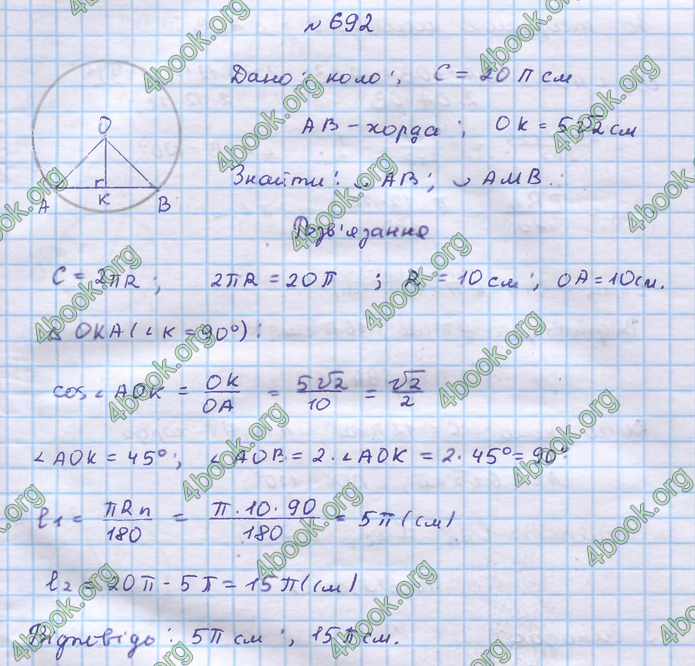 № 692
Дано: коло; C = 20π см
AB – хорда; OK = 5√2 см
Знайти: ◡AB; ◡AMB.
Розв'язання
C = 2πR; 2πR = 20π; R = 10 см; OA = 10 см.
Δ OKA (∠K = 90°):
cos∠AOK = OK/OA = 5√2/10 = √2/2
∠AOK = 45°; ∠AOB = 2·∠AOK = 2·45° = 90°
l₁ = πRn/180 = π·10·90/180 = 5π (см)
l₂ = 20π - 5π = 15π (см)
Відповідь: 5π см; 15π см.
O
A K B
4book.org